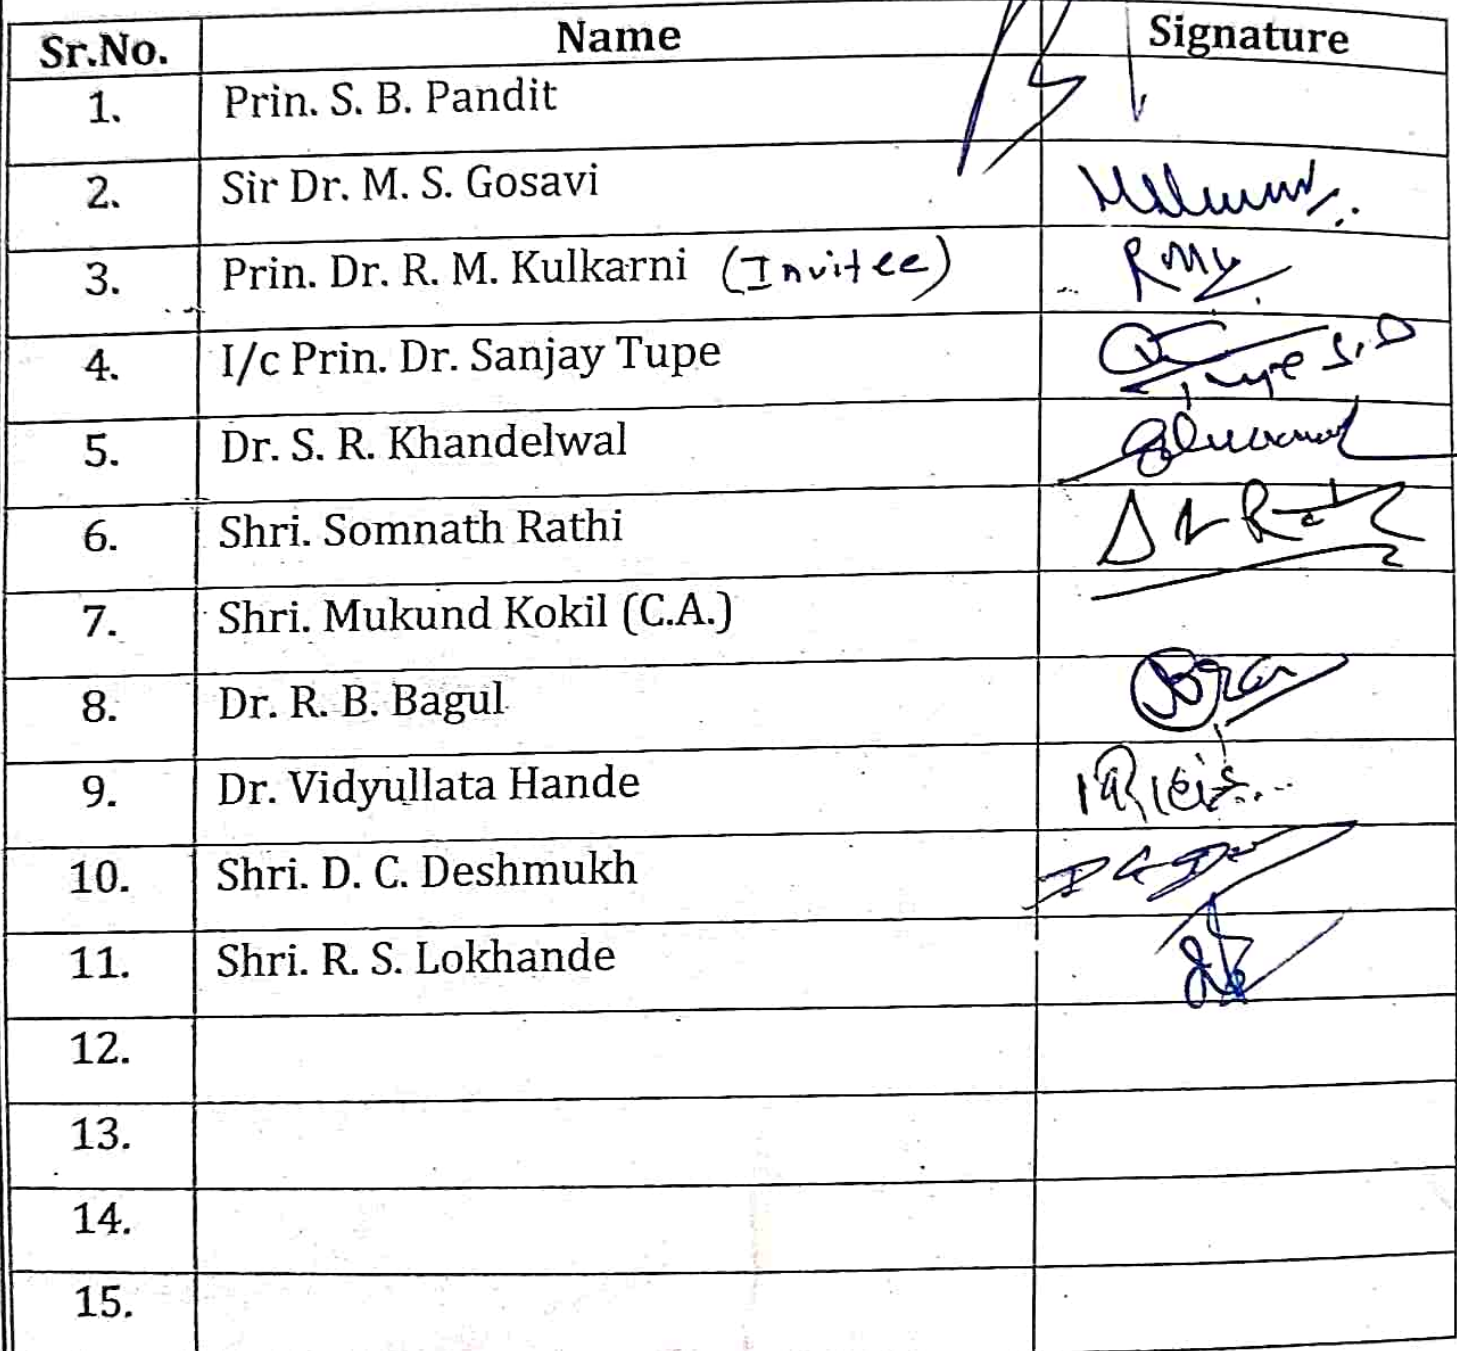 Sr.No. Name Signature
1. Prin. S. B. Pandit
2. Sir Dr. M. S. Gosavi
3. Prin. Dr. R. M. Kulkarni (Invitee)
4. I/c Prin. Dr. Sanjay Tupe
5. Dr. S. R. Khandelwal
6. Shri. Somnath Rathi
7. Shri. Mukund Kokil (C.A.)
8. Dr. R. B. Bagul
9. Dr. Vidyullata Hande
10. Shri. D. C. Deshmukh
11. Shri. R. S. Lokhande
12.
13.
14.
15.